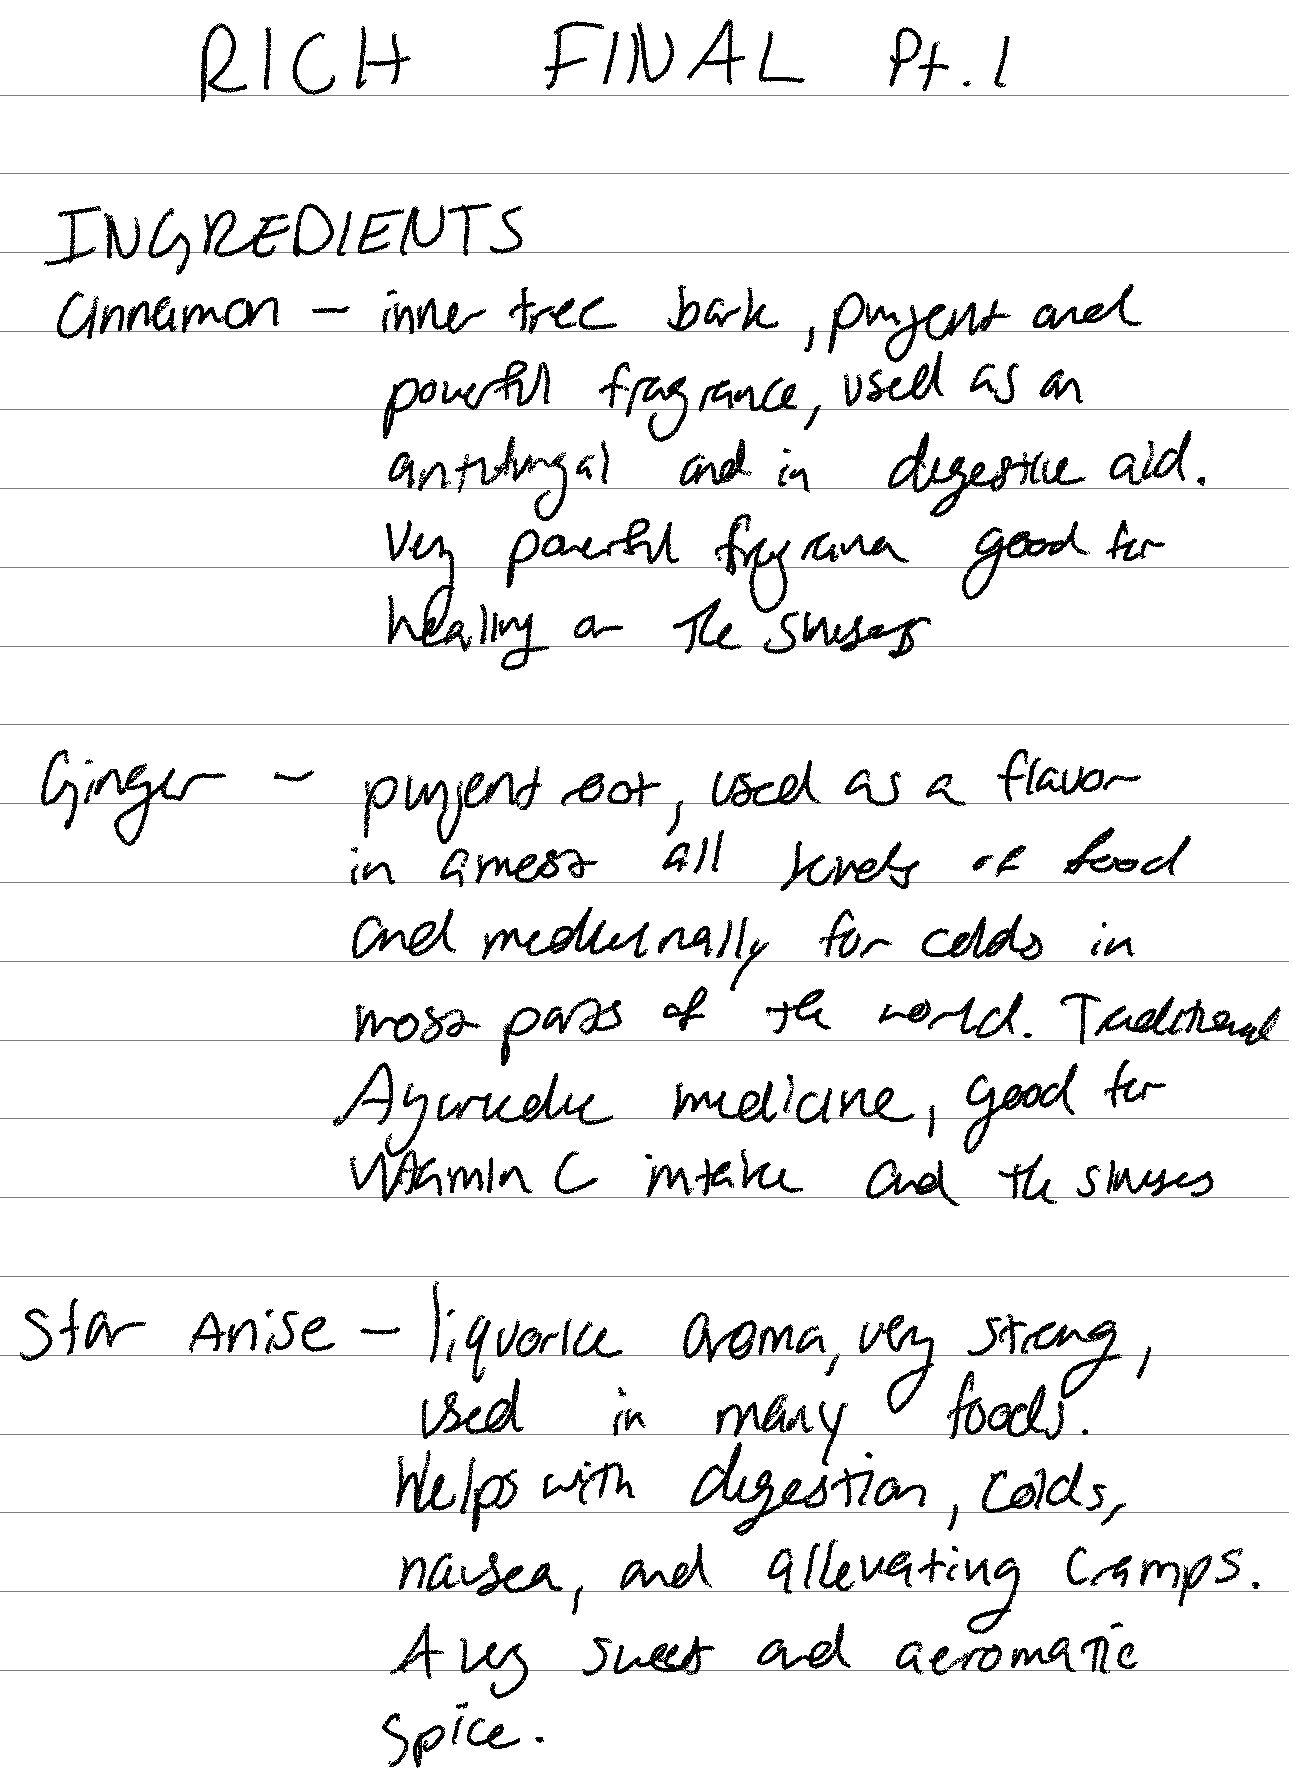 RICH FINAL Pt. 1
INGREDIENTS
Cinnamon – inner tree bark, punjent and
powerful fragrance, used as an
antifungal and in digestive aid.
Very powerful fragrance good for
healing on the sinuses
Ginger – punjent root, used as a flavor
in amost all kinds of food
and medicinally for colds in
most parts of the world. Traditional
Ayurvedic medicine, good for
Vitamin C intake and the sinuses
Star Anise – liquorice aroma, very strong,
used in many foods.
Helps with digestion, colds,
nausea, and allevating cramps.
A very sweet and aeromatic
spice.